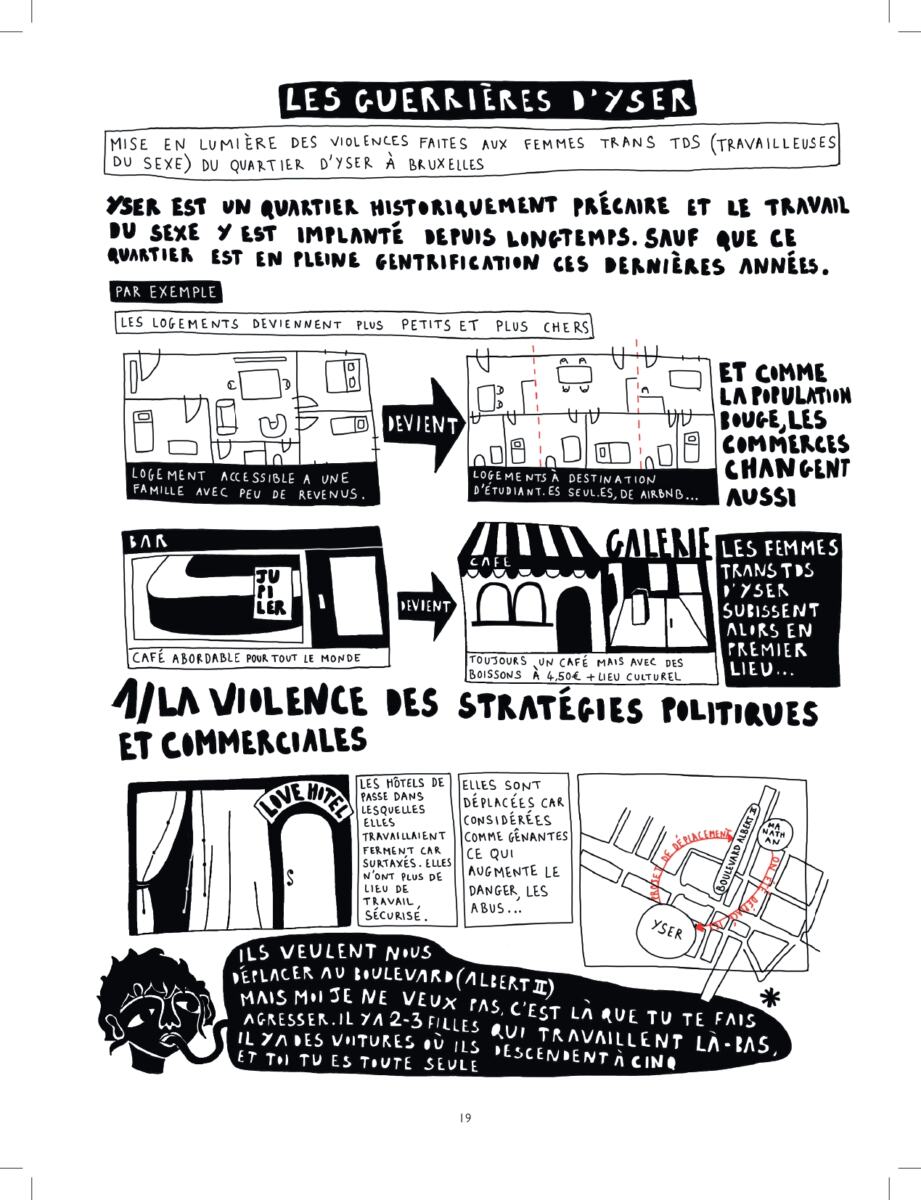 LES GUERRIÈRES D'YSER
MISE EN LUMIÈRE DES VIOLENCES FAITES AUX FEMMES TRANS TDS (TRAVAILLEUSES
DU SEXE) DU QUARTIER D'YSER À BRUXELLES
YSER EST UN QUARTIER HISTORIQUEMENT PRÉCAIRE ET LE TRAVAIL
DU SEXE Y EST IMPLANTÉ DEPUIS LONGTEMPS. SAUF QUE CE
QUARTIER EST EN PLEINE GENTRIFICATION CES DERNIÈRES ANNÉES.
PAR EXEMPLE
LES LOGEMENTS DEVIENNENT PLUS PETITS ET PLUS CHERS
LOGEMENT ACCESSIBLE A UNE
FAMILLE AVEC PEU DE REVENUS.
DEVIENT
LOGEMENTS À DESTINATION
D'ÉTUDIANT.ES SEUL.ES, DE AIRBNB...
ET COMME
LA POPULATION
BOUGE, LES
COMMERCES
CHANGENT
AUSSI
BAR
JU
PI
LER
CAFÉ ABORDABLE POUR TOUT LE MONDE
DEVIENT
CAFÉ
GALERIE
TOUJOURS UN CAFÉ MAIS AVEC DES
BOISSONS À 4,50€ + LIEU CULTUREL
LES FEMMES
TRANS TDS
D'YSER
SUBISSENT
ALORS EN
PREMIER
LIEU...
1/LA VIOLENCE DES STRATÉGIES POLITIQUES
ET COMMERCIALES
LOVE HITEL
LES HÔTELS DE
PASSE DANS
LESQUELLES
ELLES
TRAVAILLAIENT
FERMENT CAR
SURTAXÉS. ELLES
N'ONT PLUS DE
LIEU DE
TRAVAIL
SÉCURISÉ.
ELLES SONT
DÉPLACÉES CAR
CONSIDÉRÉES
COMME GÊNANTES
CE QUI
AUGMENTE LE
DANGER, LES
ABUS...
PROJET DE DÉPLACEMENT
BOULEVARD ALBERT II
MA
NATH
AN
ON ÉTÉ DÉPLACÉ
YSER
ILS VEULENT NOUS
DÉPLACER AU BOULEVARD (ALBERT II)
MAIS MOI JE NE VEUX PAS, C'EST LÀ QUE TU TE FAIS
AGRESSER. IL Y A 2-3 FILLES QUI TRAVAILLENT LÀ-BAS,
IL YA DES VOITURES OÙ ILS DESCENDENT À CINQ
ET TOI TU ES TOUTE SEULE
*
19